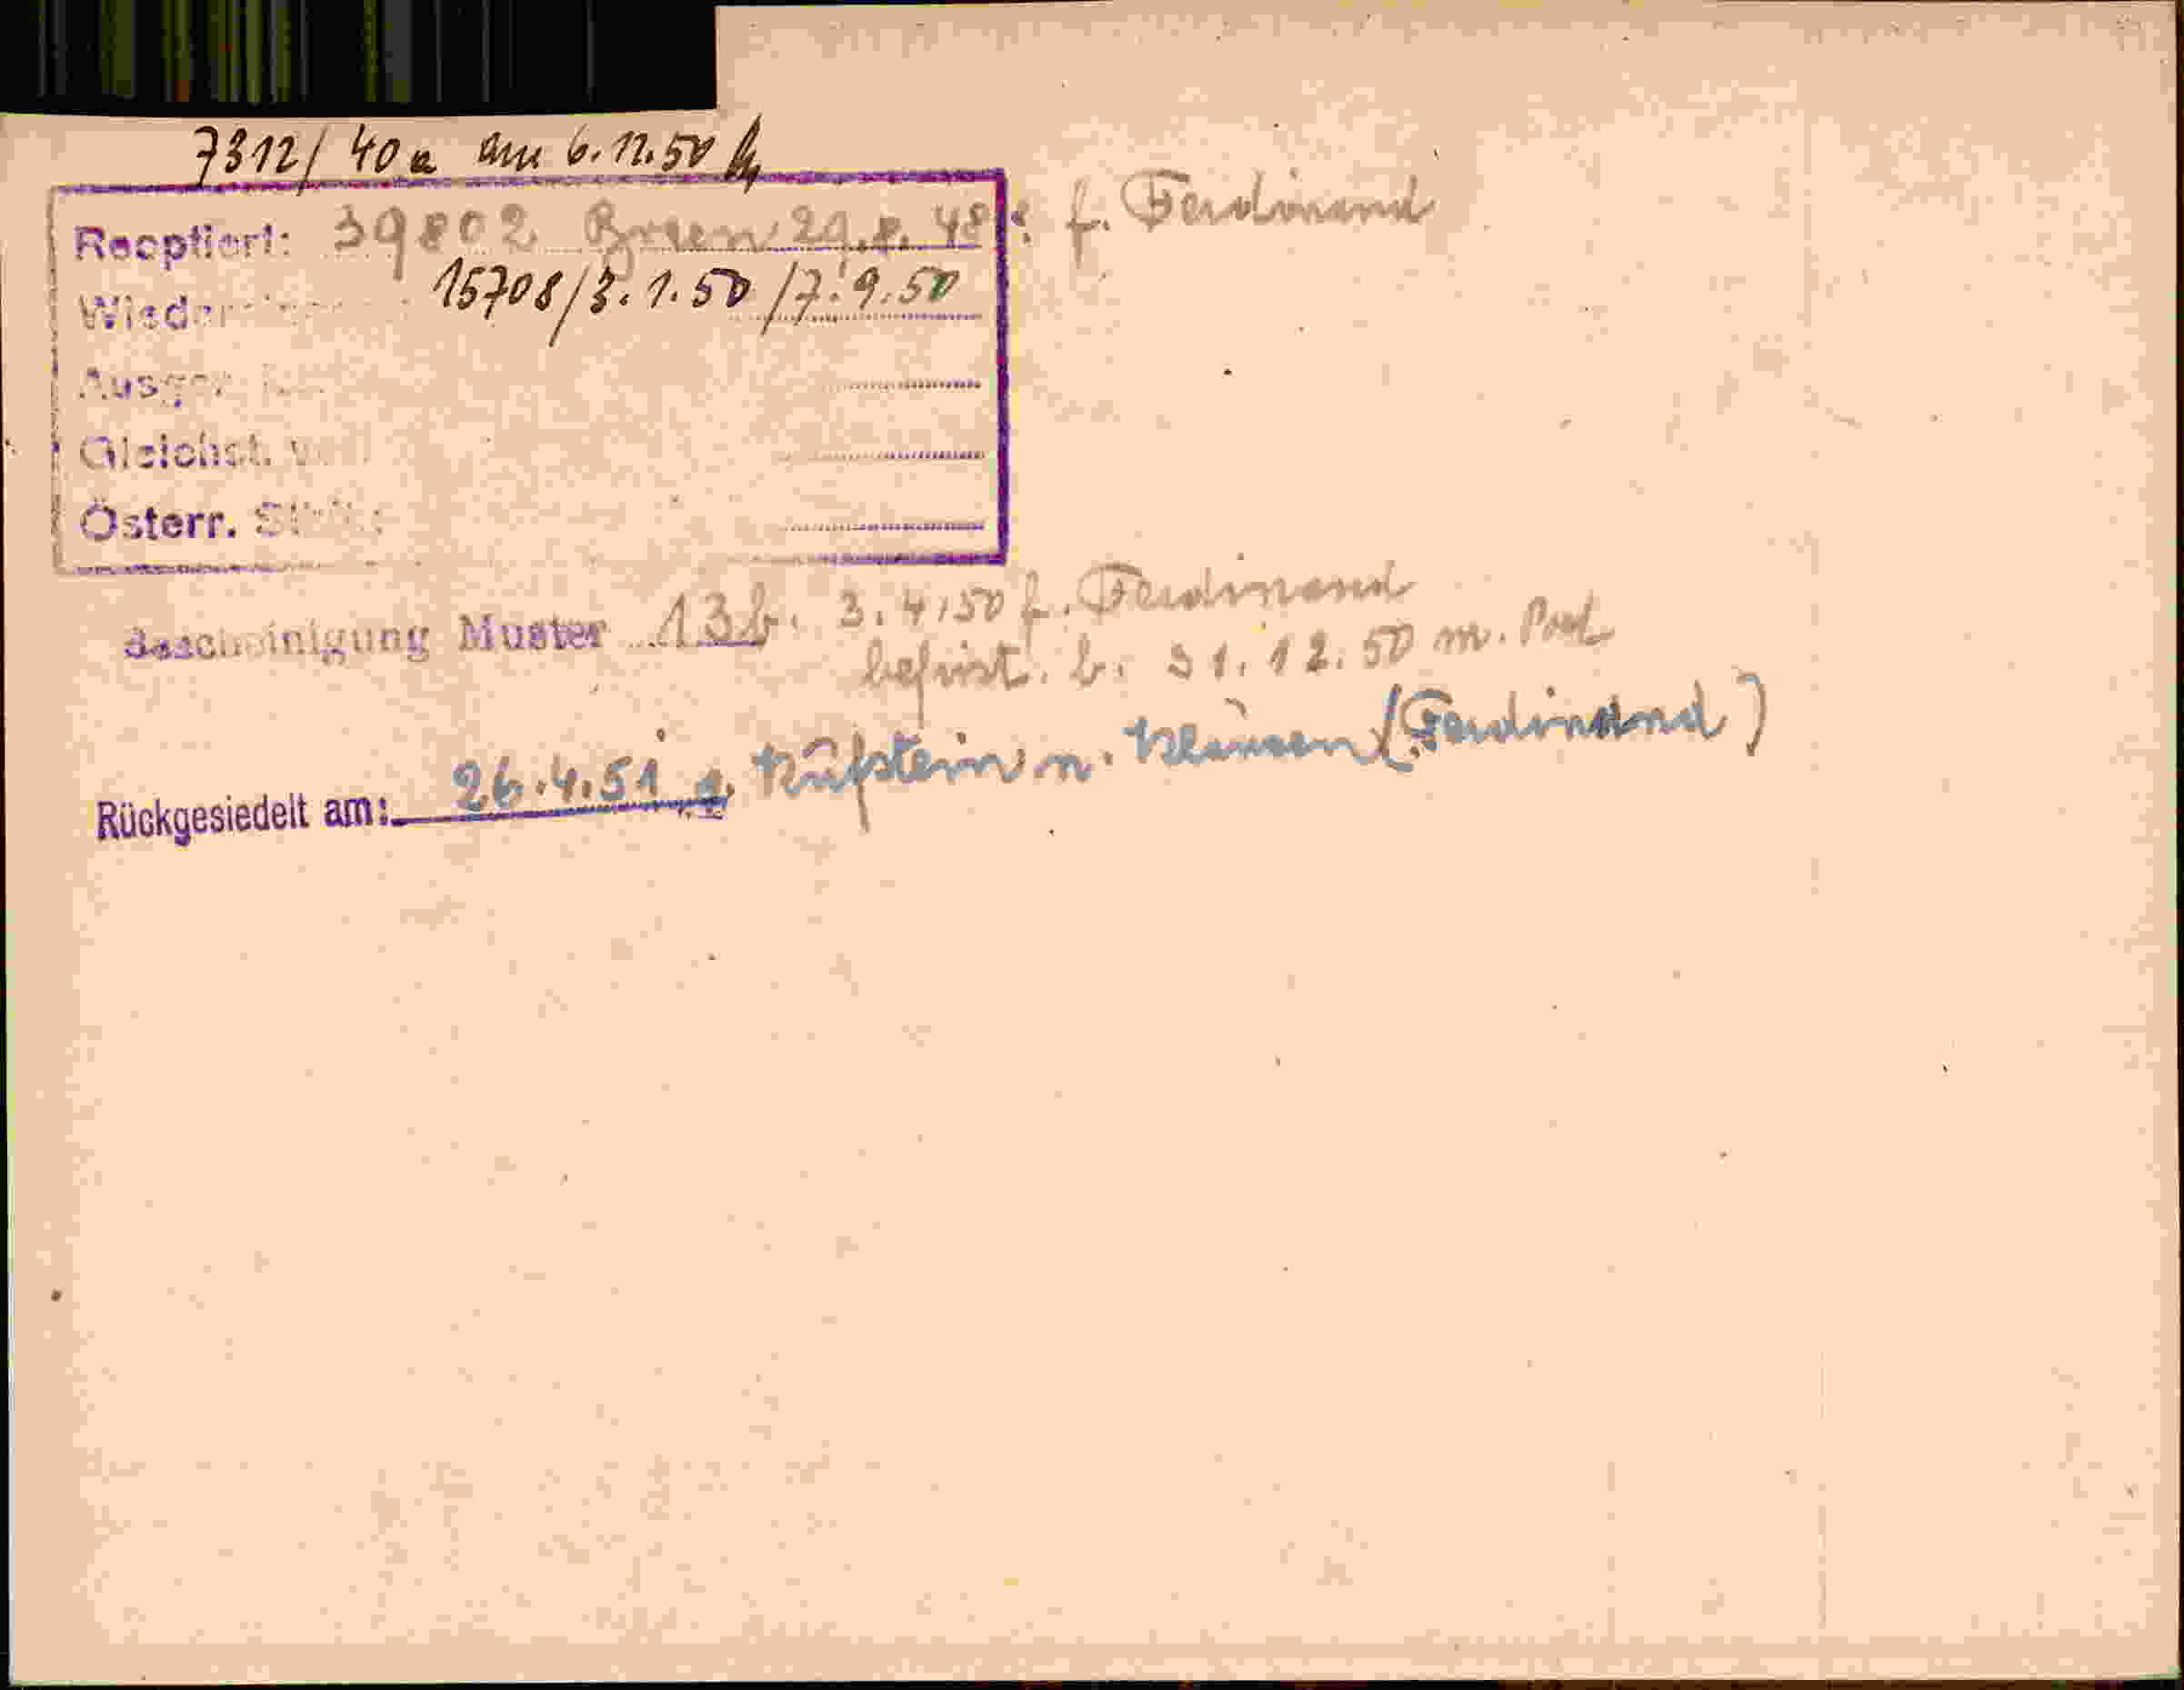 7312/ 40a am 6.12.50
Reoptiert: 39802 Bozen 29.8.48: f. Ferdinand
15708/3.1.50/7.9.50
Gleichst.
Österr.
Bescheinigung Muster 13b. 3.4.50 f. Ferdinand
befrist. b. 31.12.50 m. Post
Rückgesiedelt am: 26.4.51 ü. Kufstein n. Klausen (Ferdinand)